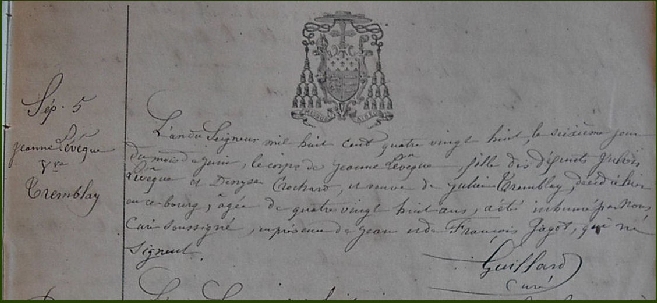 Sép. 5
Jeanne Lévêque
Vve
Tremblay
L'an du Seigneur mil huit cent quatre vingt huit, le seizième jour
du mois de juin, le corps de Jeanne Lévêque fille des défunts Julien
Lévêque et Denyse Crochard, et veuve de Julien Tremblay, décédée hier
en ce bourg, agée de quatre vingt huit ans, a été inhumé par nous
Curé soussigné, en présence de Jean et de François Jagot, qui ne
signent.
Guillard
Curé